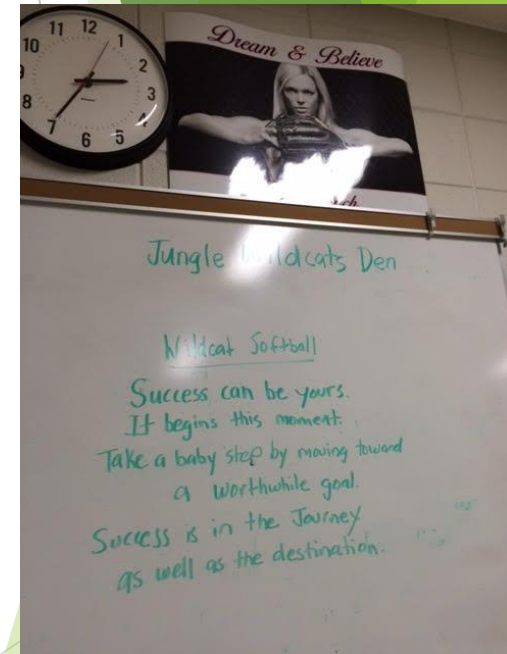 11 12 1
10 2
9 3
8 4
7 6 5
Dream & Believe
Jungle Wildcats Den
Wildcat Softball
Success can be yours.
It begins this moment.
Take a baby step by moving toward
a worthwhile goal.
Success is in the Journey
as well as the destination.